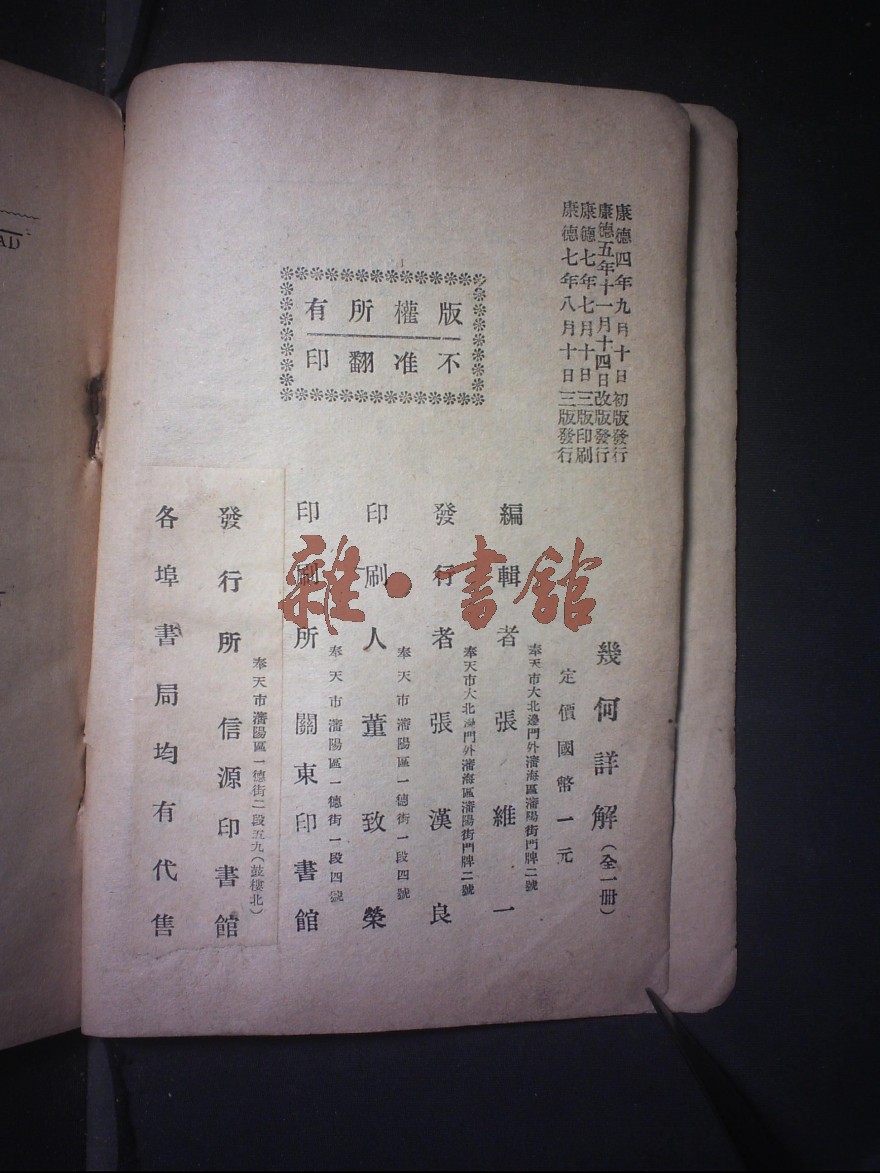 康德四年九月十日初版發行
康德五年十一月十四日改版發行
康德七年七月十日三版印刷
康德七年八月十日三版發行
版權所有
不准翻印
幾何詳解（全一册）
定價國幣一元
奉天市大北邊門外瀋海區瀋陽街門牌二號
編輯者張維一
奉天市大北邊門外瀋海區瀋陽街門牌二號
發行者張漢良
奉天市瀋陽區一德街一段四號
印刷人董致榮
奉天市瀋陽區一德街一段四號
印刷所關東印書館
奉天市瀋陽區一德街二段五九（鼓樓北）
發行所信源印書館
各埠書局均有代售
雜·書館
AD